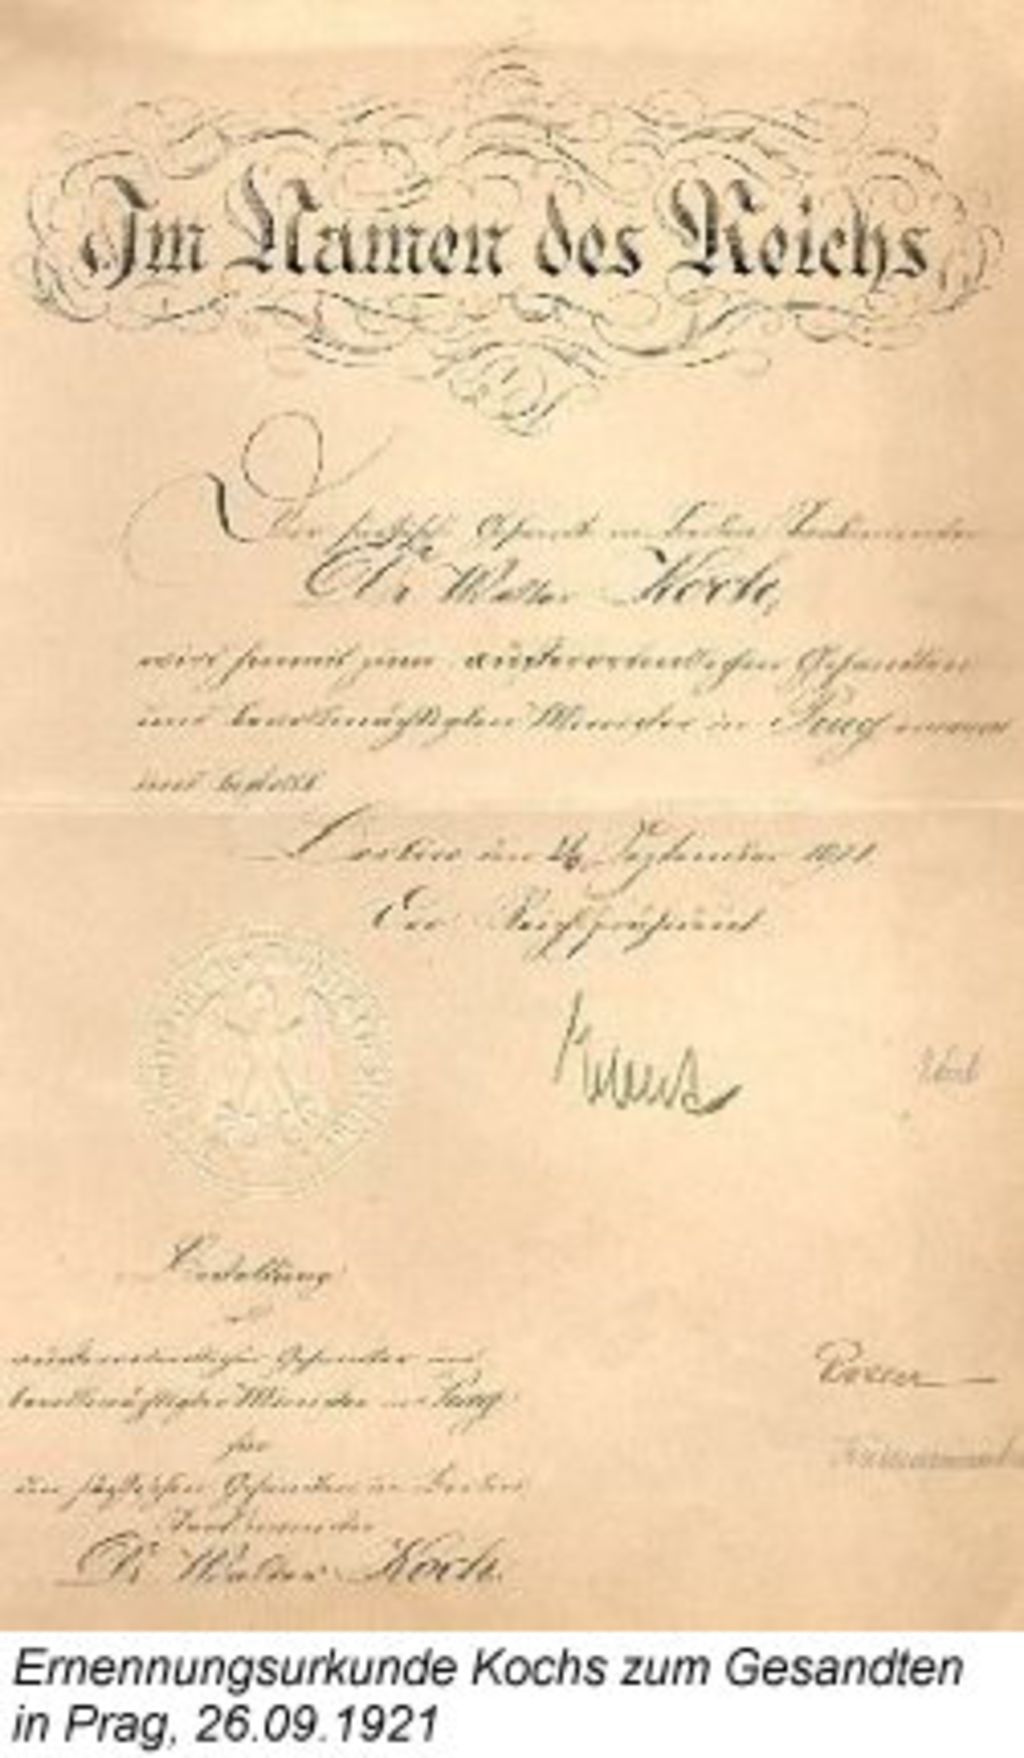 Im Namen des Reichs.
Der sächsische Gesandte in Berlin
Dr Walter Koch,
wird hiermit zum außerordentlichen Gesandten
und bevollmächtigten Minister in Prag
und bestellt
Berlin den 26. September 1921.
Der Reichspräsident
Ebert
Bestallung
außerordentlicher Gesandter und
bevollmächtigter Minister in Prag
für
den sächsischen Gesandten in Berlin
Dr Walter Koch.
Rosen
Ernennungsurkunde Kochs zum Gesandten
in Prag, 26.09.1921